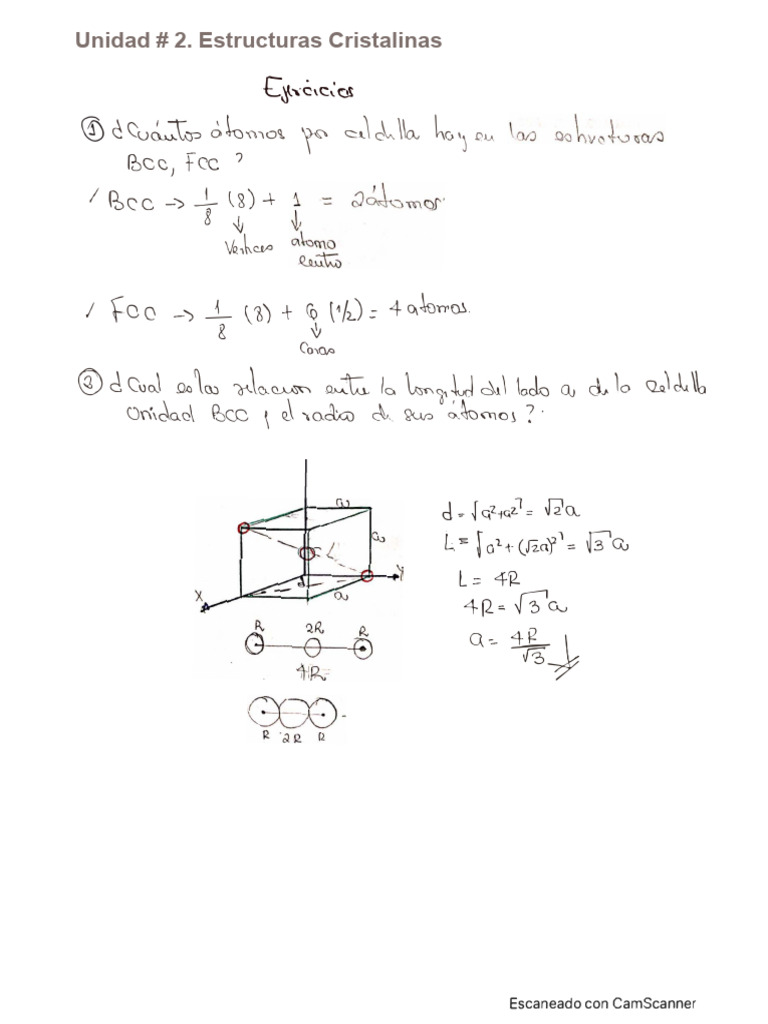 Unidad # 2. Estructuras Cristalinas
Ejercicios
① ¿Cuántos átomos por celdilla hay en las estructuras
BCC, FCC ?
/ BCC → 1/8 (8) + 1 = 2 átomos.
Vertices átomo
centro
/ FCC → 1/8 (8) + 6 (1/2) = 4 atomos.
Caras
② ¿Cual es la relacion entre la longitud del lado a, de la celdilla
Unidad BCC y el radio de sus átomos ?
a
a
L
X
Y
a
d = √a²+a² = √2 a
L = √a² + (√2a)² = √3 a
L = 4R
4R = √3 a
a = 4R/√3
R 2R R
4R
R 2R R
Escaneado con CamScanner